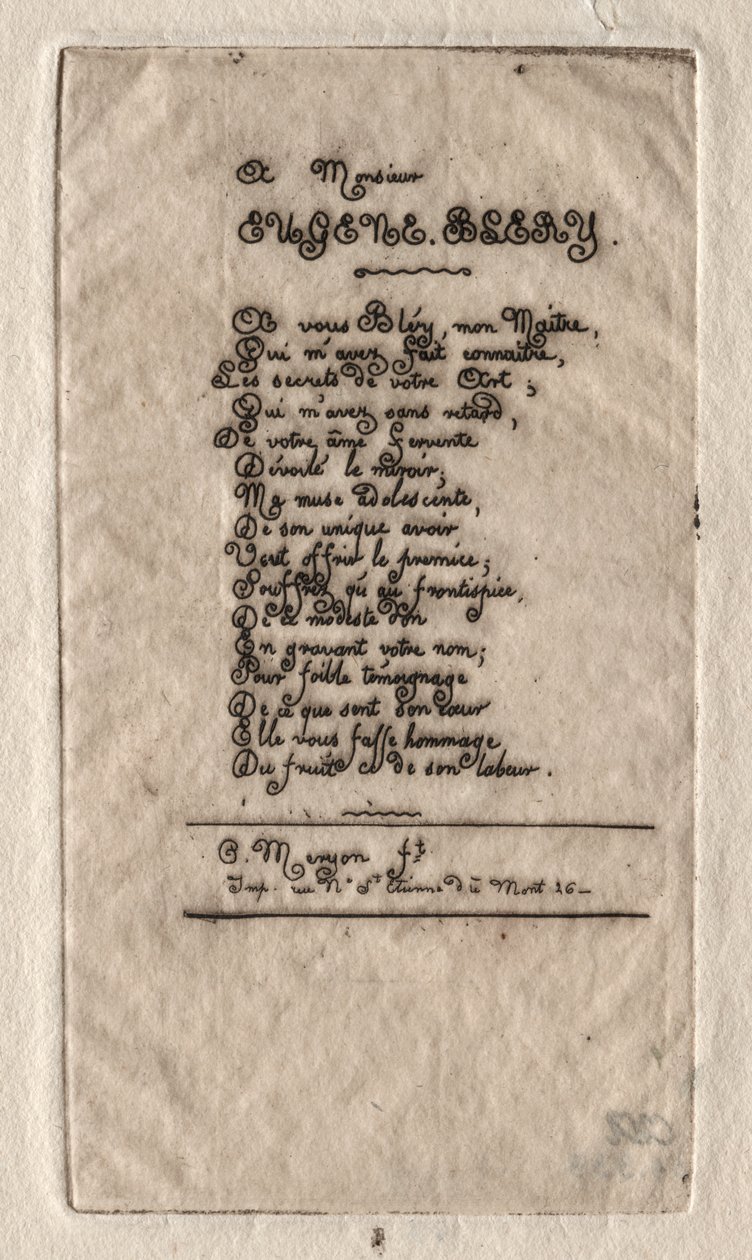 A Monsieur
EUGENE. BLERY.
A vous Bléry, mon Maître,
Qui m'avez fait connaitre,
Les secrets de votre Art;
Qui m'avez sans retard,
De votre âme fervente
Dévoilé le miroir;
Ma muse adolescente,
De son unique avoir
Veut offrir le premice;
Souffrez qu'au frontispice,
De ce modeste don
En gravant votre nom;
Pour foible témoignage
De ce que sent son cœur
Elle vous fasse hommage
Du fruit ce de son labeur.
C. Meryon ft
Imp. rue Ne St Etienne du Mont 26_